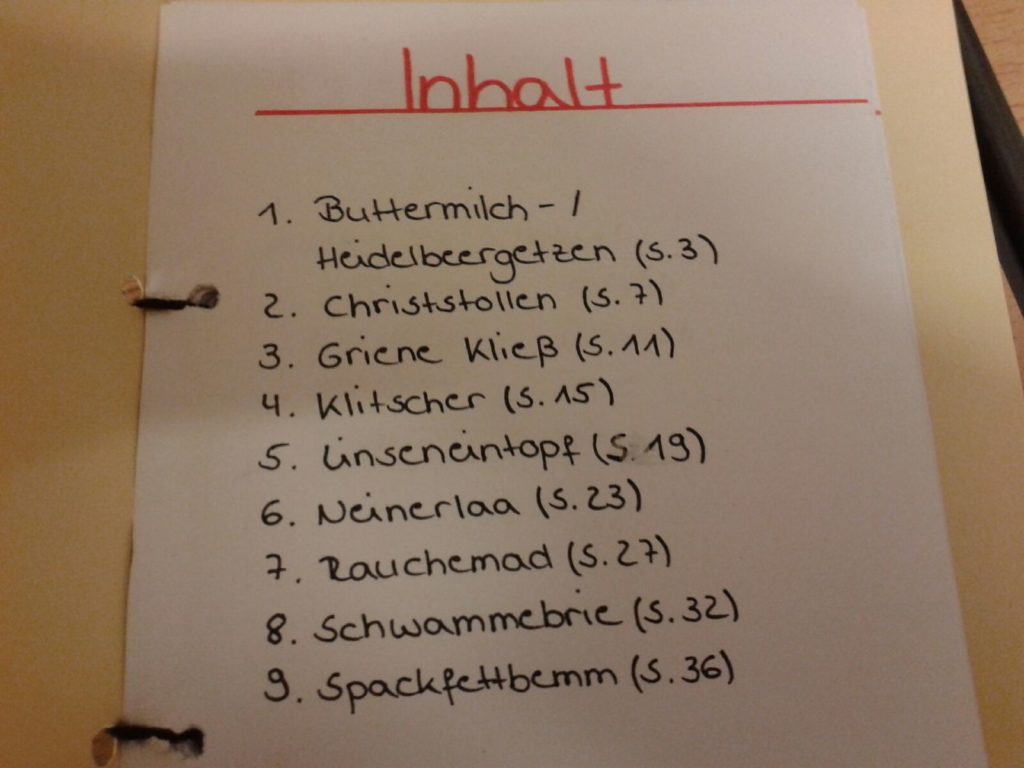 Inhalt
1. Buttermilch - /
Heidelbeergetzen (S. 3)
2. Christstollen (S. 7)
3. Griene Kließ (S. 11)
4. Klitscher (S. 15)
5. Linseneintopf (S. 19)
6. Neinerlaa (S. 23)
7. Rauchemad (S. 27)
8. Schwammebrie (S. 32)
9. Spackfettbemm (S. 36)